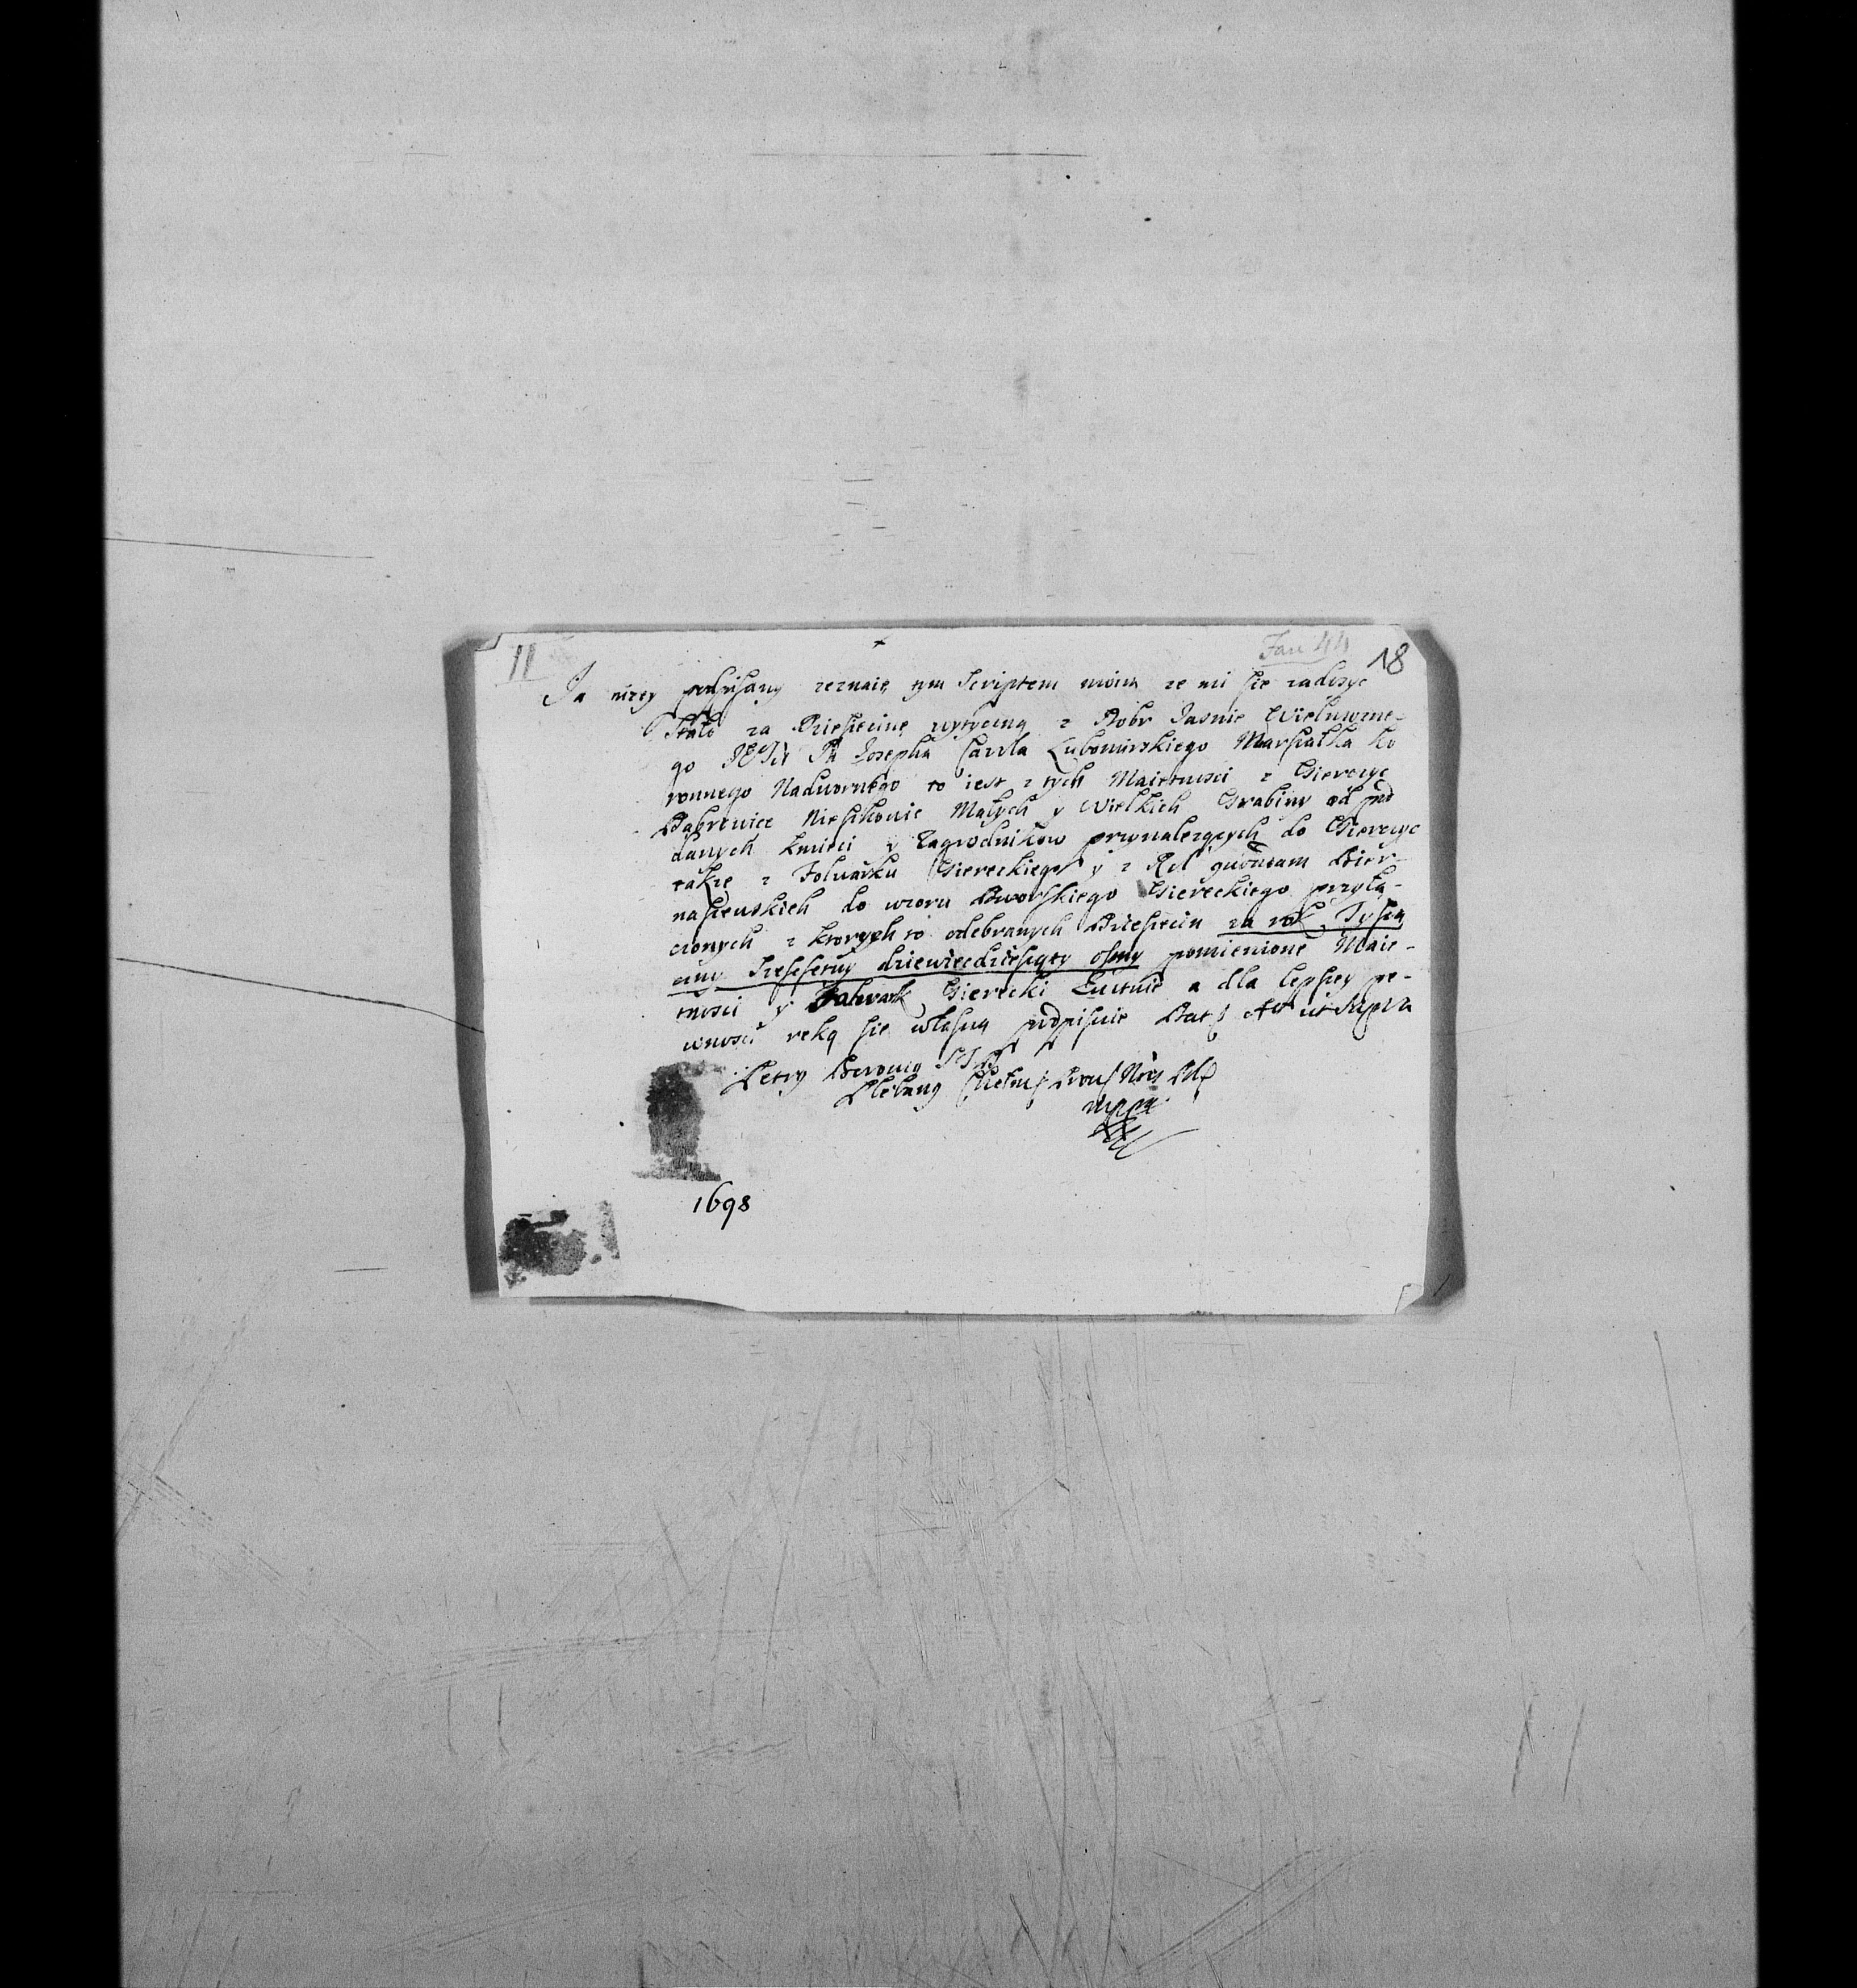 11
Fasc 44
18
Ja nizey podpisany zeznaię tym Scriptem moim ze mi się zadosyc
Stało za Dziesiecinę wytyczną z Dobr Jasnie Wielmozne-
go Pa Josepha Carola Lubomirskiego Marszałka Ko
ronnego Nadwornego to iest z tych Maiętnosci z Gierczyc
Dąbrowice Niesikowic Małych y Wielkich Grabiny od pod
danych kmieci y Zagrodnikow przynalezących do Gierczyc
także z Folwarku Giereckiego y z Rol quondam
do Dworskiego Giereckiego przyłą-
czonych z ktorych to odebranych Dziesiecin za rok Tysią
czny Szescsetny dziewiecdziesiąty osmy pomienione Maie-
tnosci y Folwark Gierecki kwituie a dla lepszey pe-
wnosci ręką się własną podpisuie Dat Act ut Supra
Petry
Plebany
mppa
1698